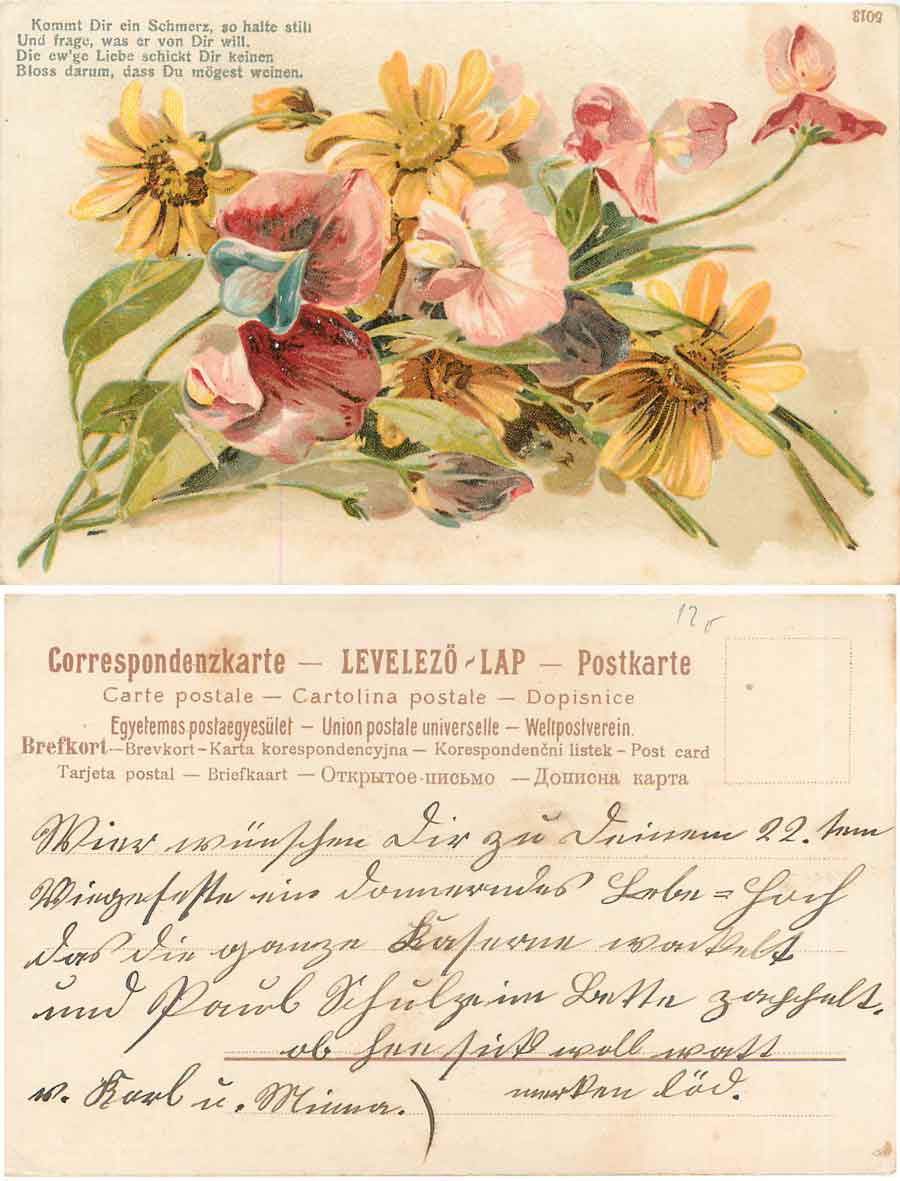 Kommt Dir ein Schmerz, so halte still
Und frage, was er von Dir will.
Die ew'ge Liebe schickt Dir keinen
Bloss darum, dass Du mögest weinen.
5013
12
Correspondenzkarte — LEVELEZŐ-LAP — Postkarte
Carte postale — Cartolina postale — Dopisnice
Egyetemes postaegyesület — Union postale universelle — Weltpostverein.
Brefkort—Brevkort-Karta korespondencyjna — Korespondenční listek - Post card
Tarjeta postal — Briefkaart — Открытое письмо — Дописна карта
Wier wünschen Dir zu Deinem 22. tem
Wiegefeste ein donnerndes Lebe=Hoch
das die ganze Kaserne wackelt
und Paul Schulze im Bette zappelt.
ob hen sick woll watt
merken löd.
v. Karl u. Minna.)